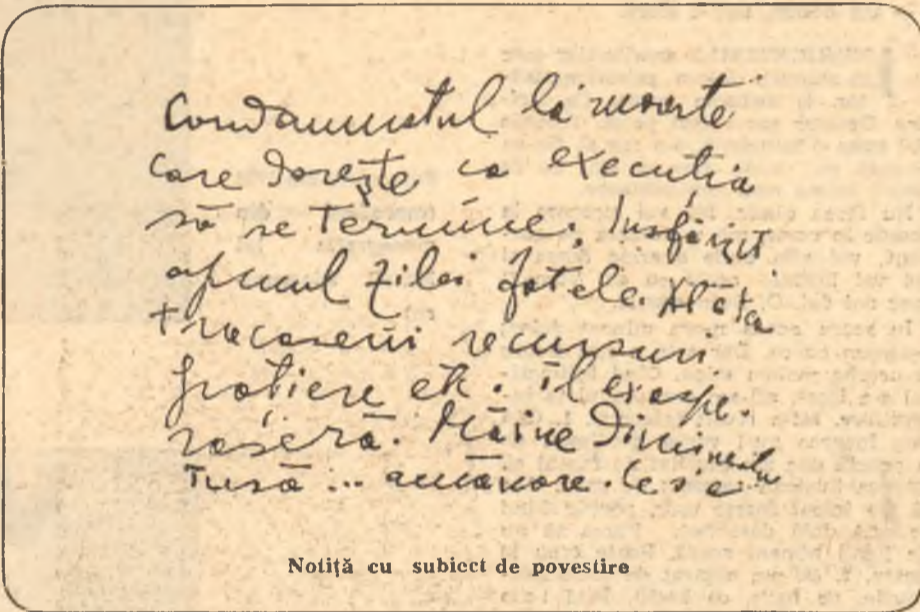 Condamnatul la moarte
care dorește ca execuția
să se termine. Insfârșit
apucul zilei fatele. Atâta
tracaserii recursuri
grațiere etc. îl exaspe-
raseră. Mâine dimineața
însă ... amânare. Ce s-a
Notiță cu subiect de povestire